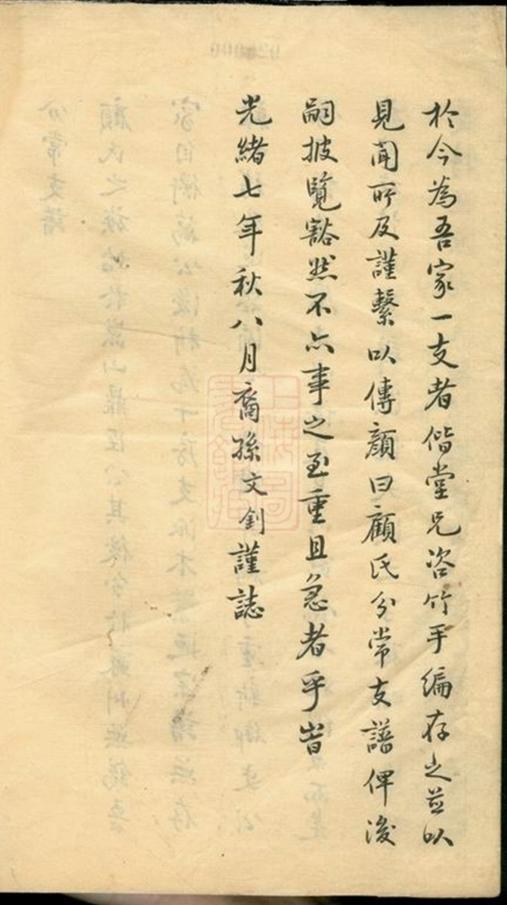 於今為吾家一支者偕堂兄咨竹手編存之並以
見聞所及謹繫以傳顏曰顧氏分常支譜俾後
嗣披覽豁然不亦事之至重且急者乎峕
光緒七年秋八月裔孫文釗謹誌